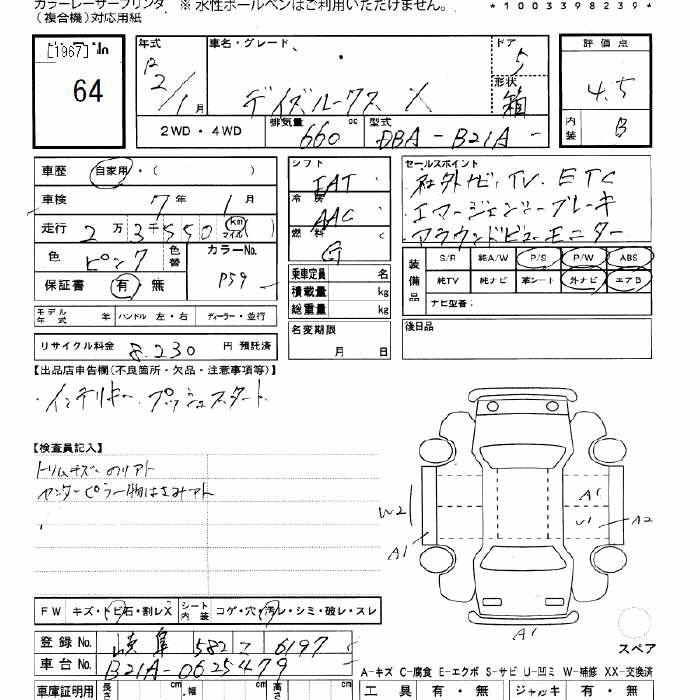 カラーレーザープリンタ ※ 水性ボールペンはご利用いただけません。
(複合機)対応用紙
*1003398239*
[1967]
64
年式
車名・グレード
ドア
評価点
2/1月
デイズルークス X
5
形状
箱
4.5
2WD・4WD
排気量 660 cc
型式 DBA-B21A
内装 B
車歴 自家用・( )
車検 7年 1月
走行 2万3千550 km マイル( )
色 ピンク 色替
カラーNo. P59
保証書 有・無
モデル年式 年 ハンドル 左・右 ディーラー・並行
リサイクル料金 8,230 円 預託済
シフト
冷房 AAC
燃料 G
乗車定員 名
積載量 kg
総重量 kg
名変期限
月 日
セールスポイント
社外ナビ、TV、ETC
・エマージェンシーブレーキ
・アラウンドビューモニター
装備品
S/R 純A/W P/S P/W ABS
純TV 純ナビ 革シート 外ナビ エアB
ナビ型番:
後日品
【出品店申告欄(不良箇所・欠品・注意事項等)】
・インテリキー プッシュスタート
【検査員記入】
トリムキズ のリアト
センターピラー物はさみアト
W2
A1
A1
W1
A2
A1
スペア
FW キズ・トビ石・割レX シート内装 コゲ・穴・汚レ・シミ・破レ・スレ
登録No. 岐阜 582 6197
車台No. B21A-0625479
A-キズ C-腐食 E-エクボ S-サビ U-凹ミ W-補修 XX-交換済
車庫証明用 長さ cm 幅 cm 高さ cm
工具 有・無 ジャッキ 有・無